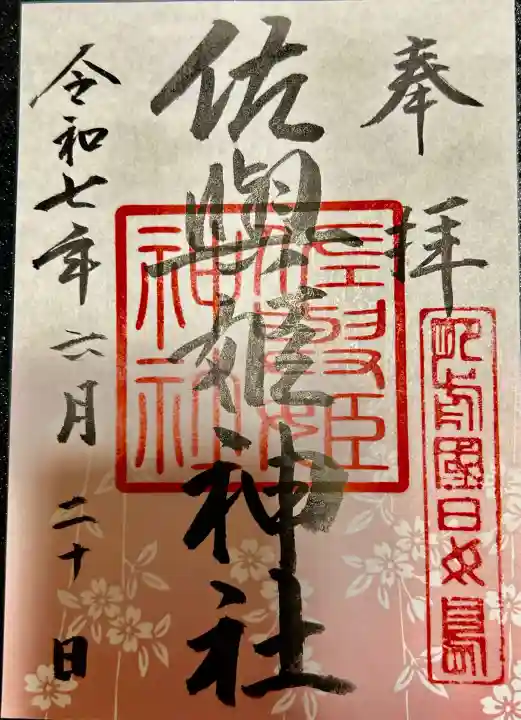 奉拝
肥前國日女島
佐與姫神社
佐與姫神社
令和七年六月二十日